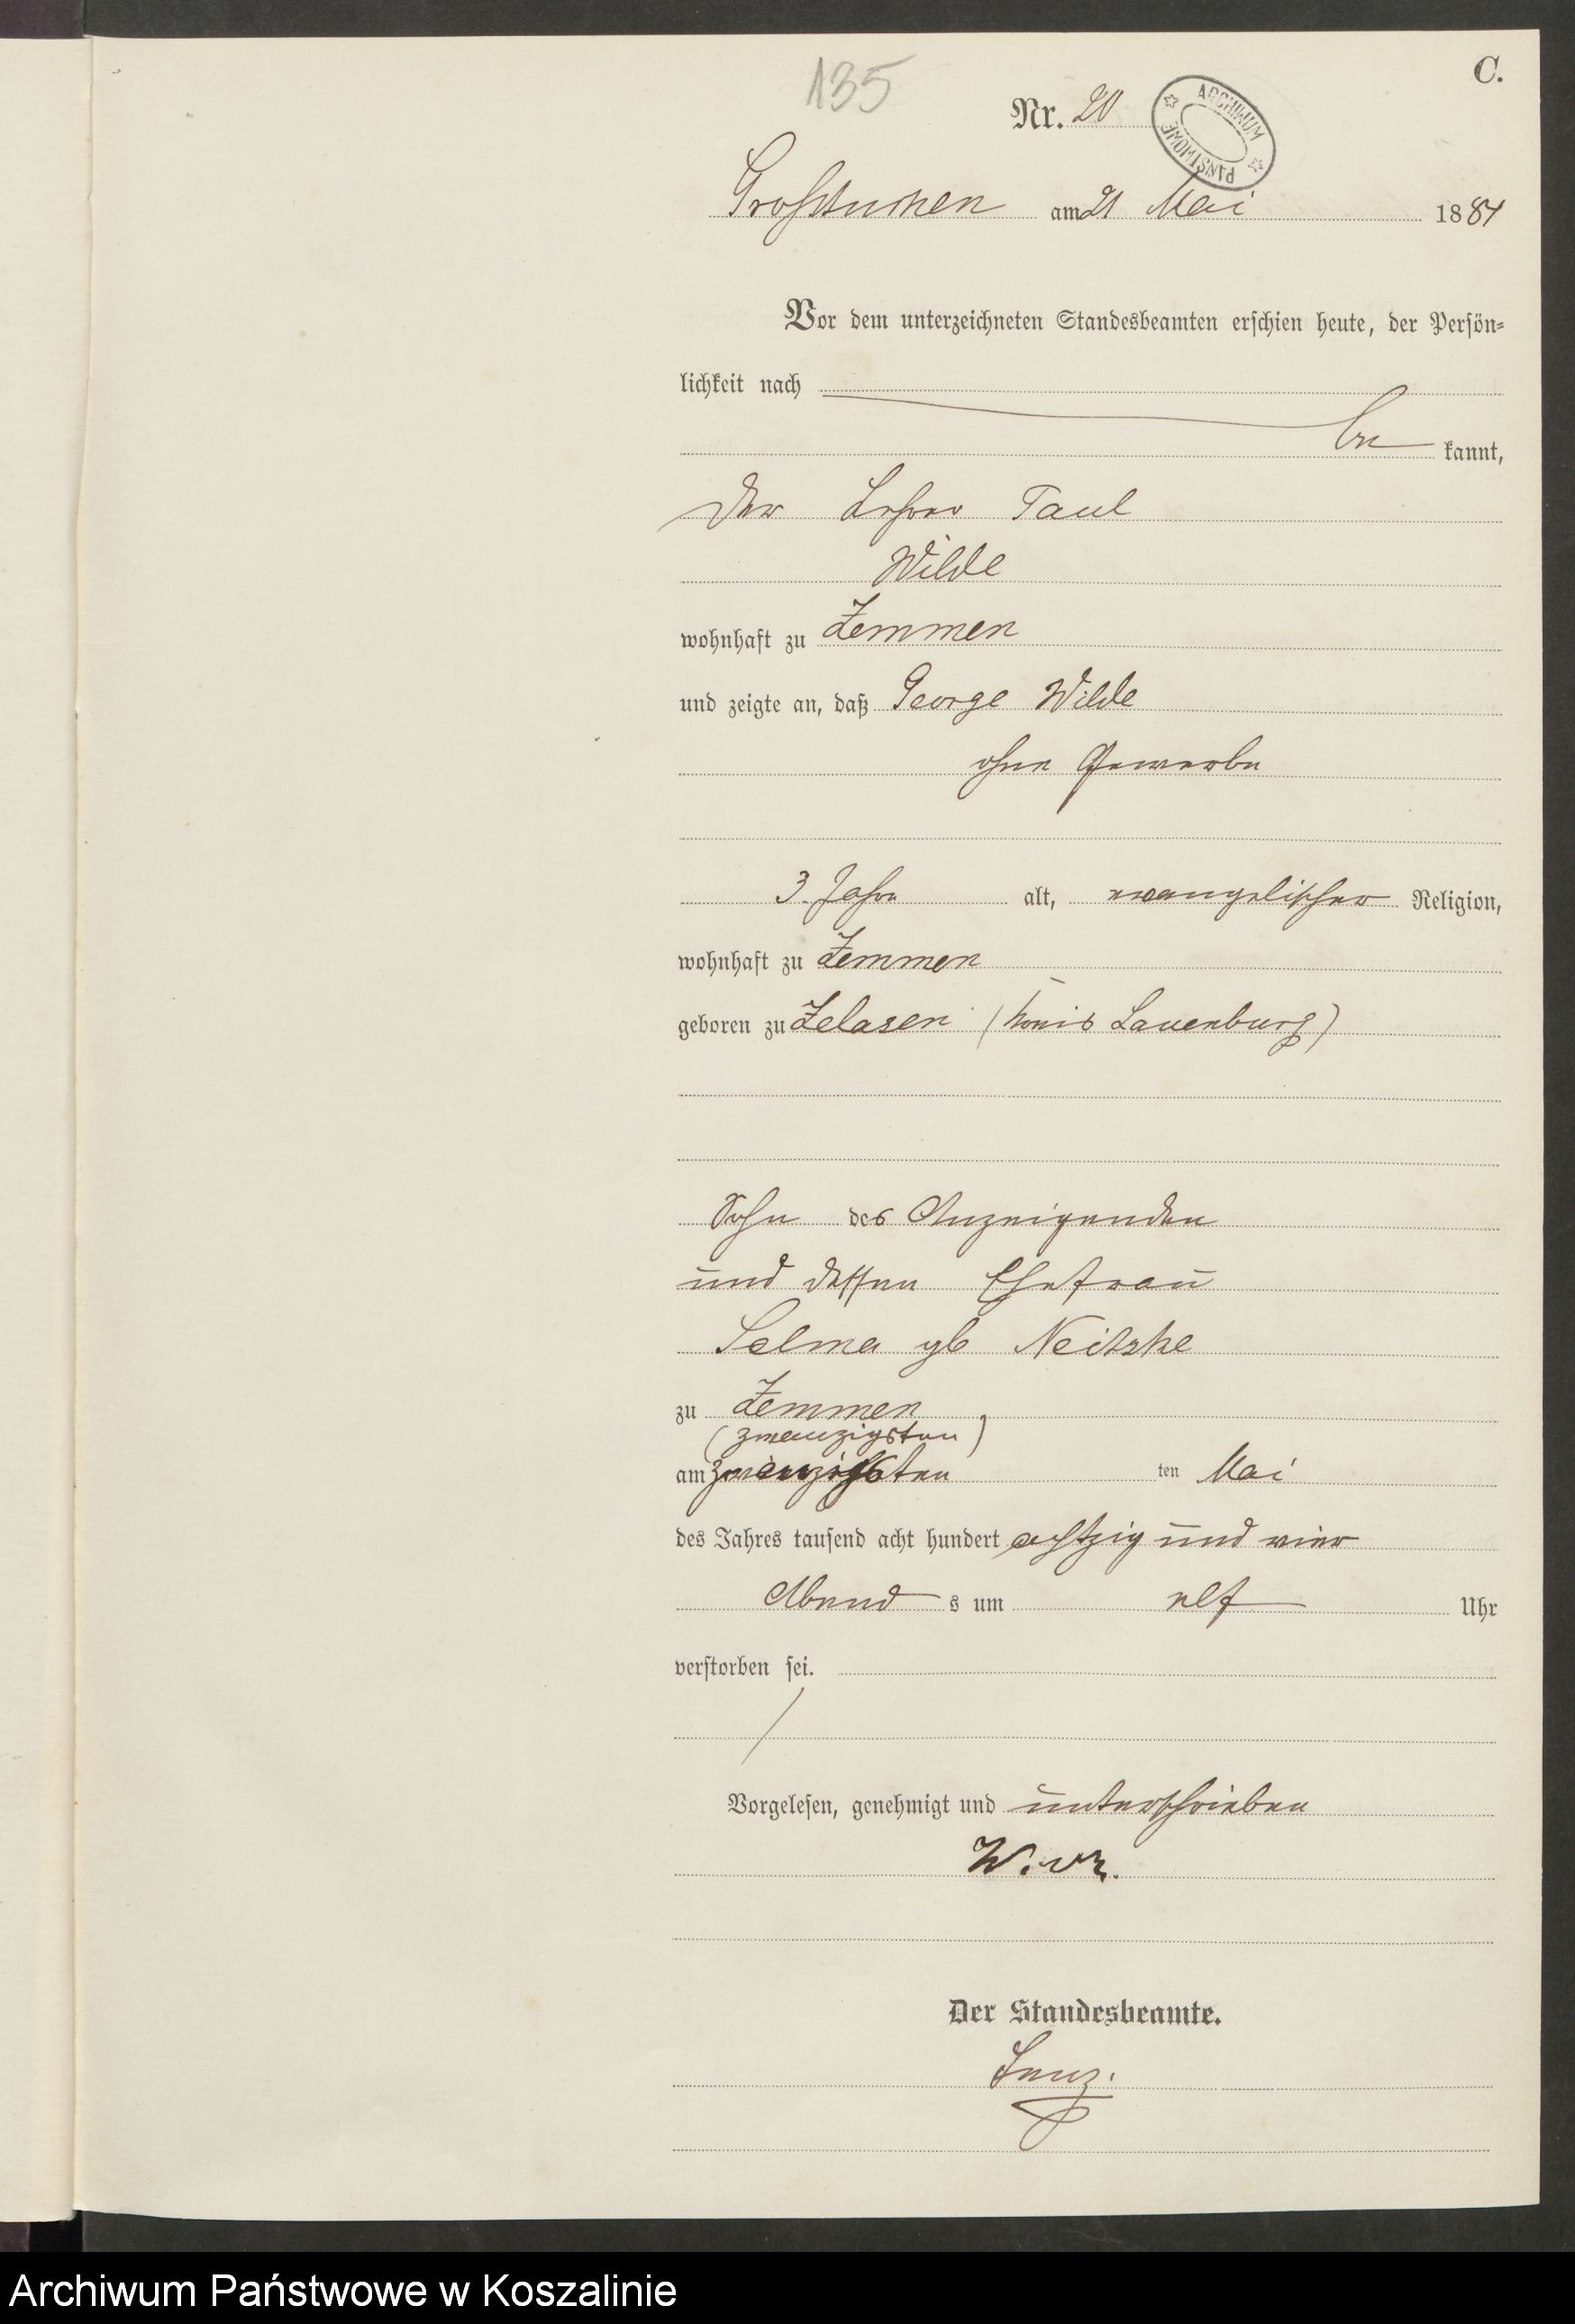 135
C.
Nr. 20
ARCHIWUM PAŃSTWOWE
Großtuchen am 21 Mai 1884
Vor dem unterzeichneten Standesbeamten erschien heute, der Persön-
lichkeit nach
be kannt,
der Lehrer Paul
Wilde
wohnhaft zu Zemmen
und zeigte an, daß George Wilde
ohne Gewerbe
3 Jahre alt, evangelischer Religion,
wohnhaft zu Zemmen
geboren zu Zelasen (Kreis Lauenburg)
Sohn des Anzeigenden
und dessen Ehefrau
Selma geb Neitzke
zu Zemmen
(zwanzigsten)
am zwanzigsten ten Mai
des Jahres tausend acht hundert achtzig und vier
Abend s um elf Uhr
verstorben sei.
Vorgelesen, genehmigt und unterschrieben
Der Standesbeamte.
Archiwum Państwowe w Koszalinie